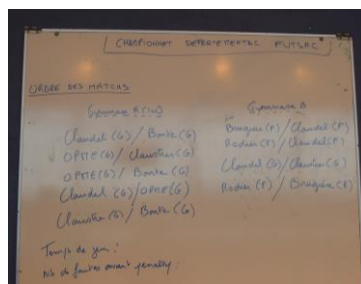 CHAMPIONNAT DEPARTEMENTAL FUTSAL
ORDRE DES MATCHS
Gymnase A
Claudel (G) / Bonte (G)
OPME (G) / Claustre (G)
OPME (G) / Bonte (G)
Claudel (G) / OPME (G)
Claustre (G) / Bonte (G)
Gymnase B
Bruguière (F) / Claudel (F)
Rodier (F) / Claudel (F)
Claudel (G) / Claustre (G)
Rodier (F) / Bruguière (F)
Temps de jeu :
Nb de fautes avant penalty :